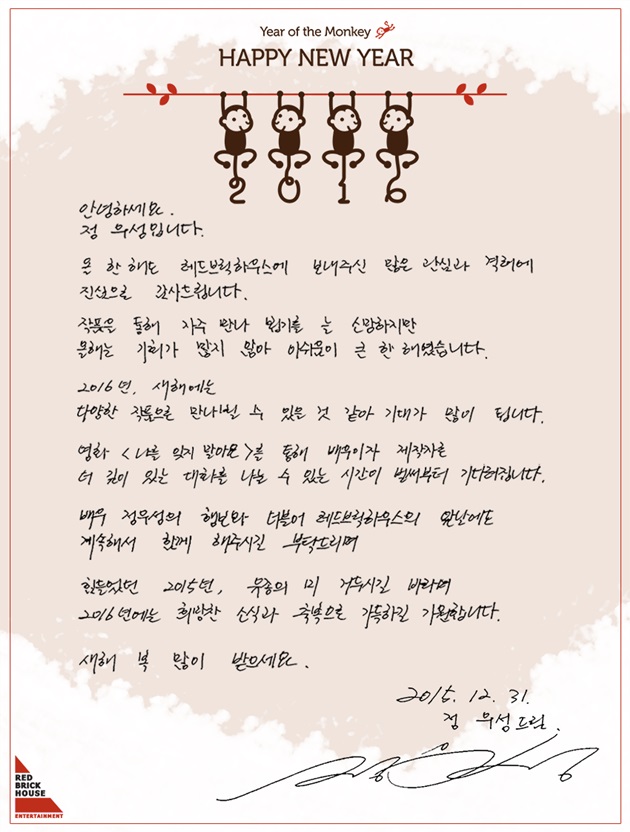 Year of the Monkey
HAPPY NEW YEAR
2016
안녕하세요.
정우성입니다.
올 한해도 레드브릭하우스에 보내주신 많은 관심과 격려에
진심으로 감사드립니다.
작품을 통해 자주 만나 뵙기를 늘 소망하지만
올해는 기회가 많지 않아 아쉬움이 큰 한 해였습니다.
2016년, 새해에는
다양한 작품으로 만나뵐 수 있을 것 같아 기대가 많이 됩니다.
영화 <나를 잊지 말아요>를 통해 배우이자 제작자로
더 깊이 있는 대화를 나눌 수 있는 시간이 벌써부터 기다려집니다.
배우 정우성의 행보와 더불어 레드브릭하우스의 앞날에도
계속해서 함께 해주시길 부탁드리며
힘들었던 2015년, 유종의 미 거두시길 바라며
2016년에는 희망찬 소식과 축복으로 가득하길 기원합니다.
새해 복 많이 받으세요.
2015. 12. 31.
정우성드림.
RED
BRICK
HOUSE
ENTERTAINMENT